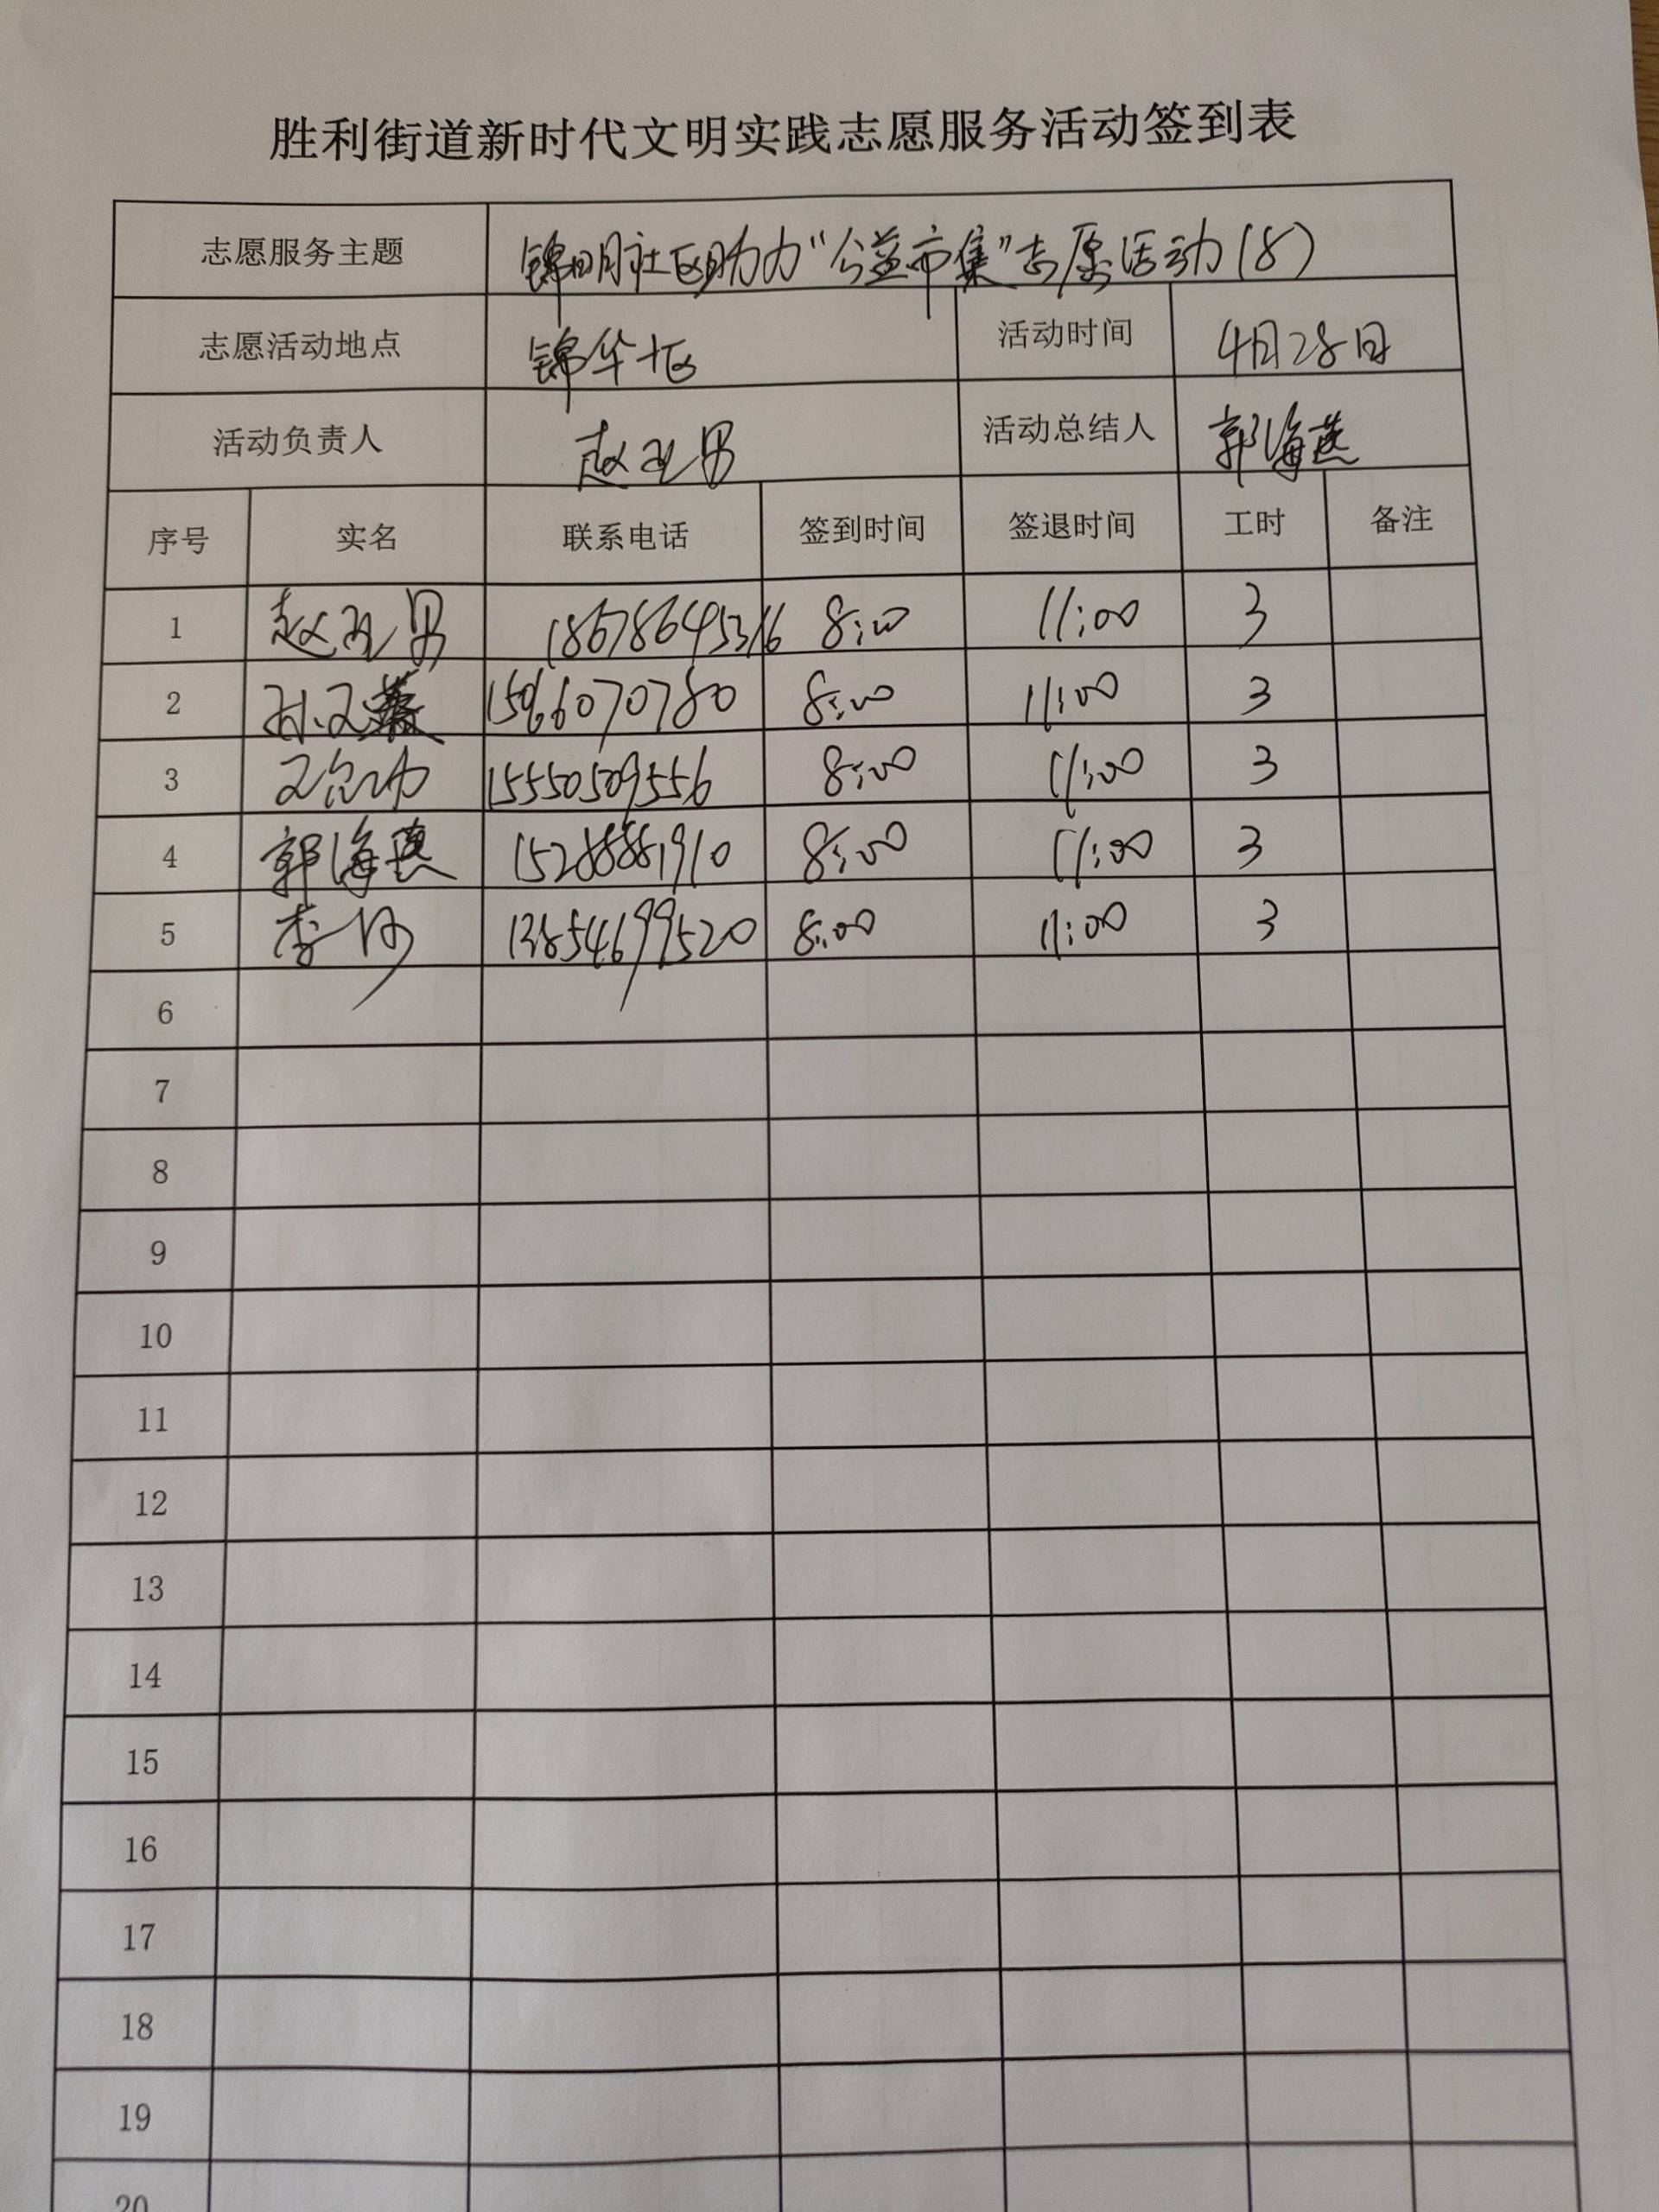 胜利街道新时代文明实践志愿服务活动签到表
志愿服务主题 锦明社区助力“公益市集”志愿活动(8)
志愿活动地点 锦华十区 活动时间 4月28日
活动负责人 赵亚男 活动总结人 郭海燕
序号 实名 联系电话 签到时间 签退时间 工时 备注
1 赵亚男 18678645316 8:00 11:00 3
2 孙 15966070780 8:00 11:00 3
3 15550509556 8:00 11:00 3
4 郭海燕 15288881910 8:00 11:00 3
5 李 13854699520 8:00 11:00 3
6
7
8
9
10
11
12
13
14
15
16
17
18
19
20